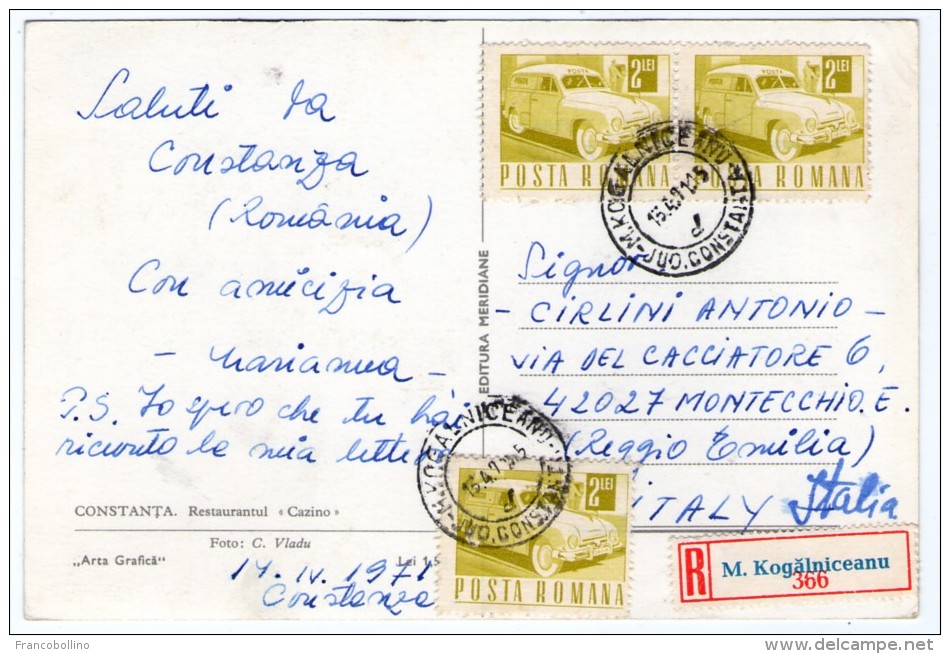 Saluti da
Constanza
(România)
Con amicizia
- Marianna -
P.S. Io spero che tu hai
ricevuto la mia lettera
CONSTANŢA. Restaurantul « Cazino »
Foto: C. Vladu
„Arta Grafică”
Lei 1,5
14. IV. 1971
Constanza
EDITURA MERIDIANE
POSTA
2 LEI
POSTA ROMANA
POSTA
2 LEI
POSTA ROMANA
M.KOGALNICEANU
JUD.CONSTANTA
Signor
- CIRLINI ANTONIO -
VIA DEL CACCIATORE 6,
42027 MONTECCHIO.E.
(Reggio Emilia)
ITALY Italia
M.KOGALNICEANU
JUD.CONSTANTA
2 LEI
POSTA ROMANA
R M. Kogălniceanu
366
Francobollino
www.delcampe.net